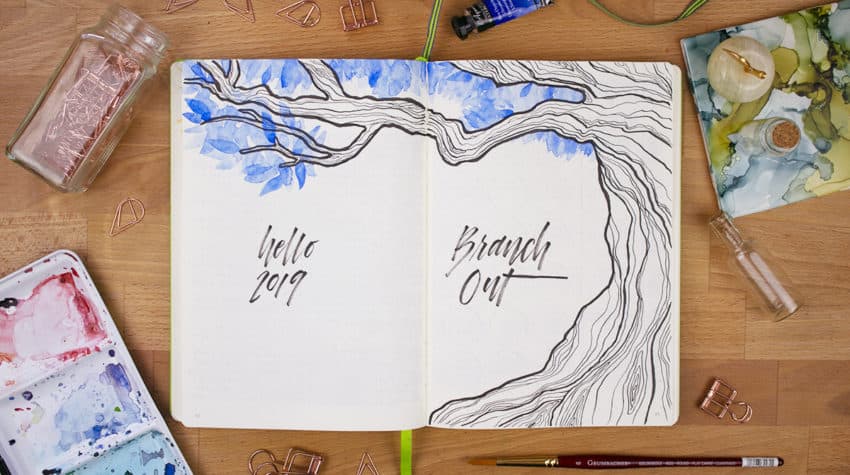 hello
2019
Branch
Out
GRUMBACHER